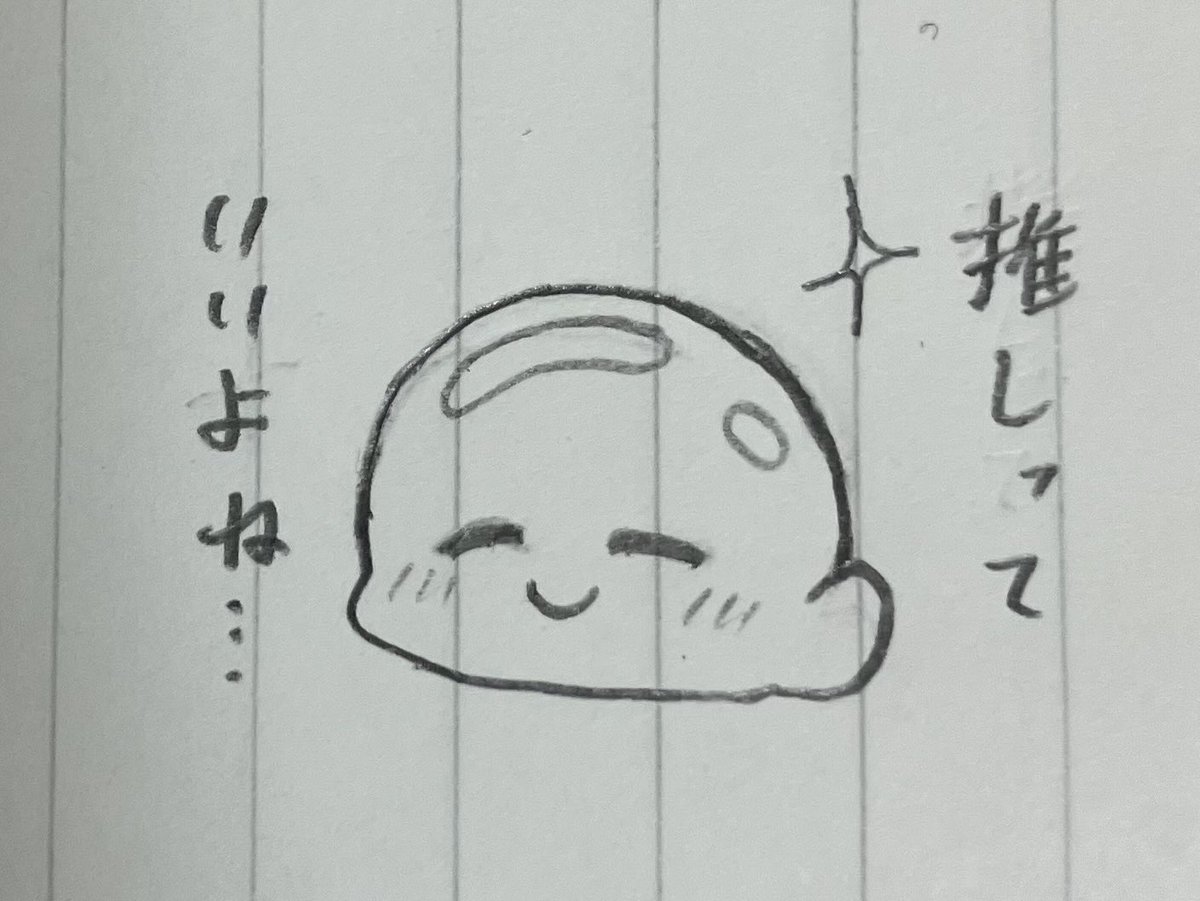 推しって
いいよね…